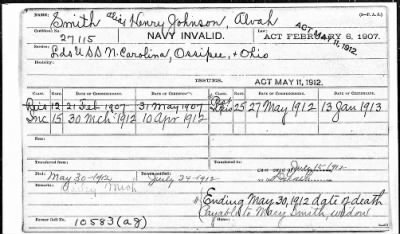 Smith alias Henry Johnson, Alvah
Certificate No. Name.
27115 NAVY INVALID. ACT FEBRUARY 6, 1907.
ACT MAY 11, 1912.
Lds U.S.S. N. Carolina, Ossipee, & Ohio
Service.
ISSUES. ACT MAY 11, 1912.
Class. Rate. Date of Commencement. Date of Certificate. Class. Rate. Date of Commencement. Date of Certificate.
Reis 12 21 Feb 1907 31 May 1907 25 27 May 1912 13 Jan 1913
Inc 15 30 Mch 1912 10 Apr 1912
Transferred from
July 15 1912
May 30-1912 July 24-1912
Died Transferred to
Mich
Ending May 30, 1912 date of death
Payable to Mary Smith, widow
Former Roll No. 10583 (a8)